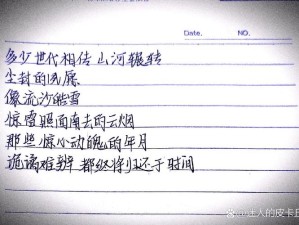 Date.　NO.
多少世代相传 山河辗转
尘封的
像流沙皓雪
惊雪照面南去的云烟
那些惊心动魄的年月
诡谲难辨 都终将归还于时间
迷人的皮卡丘